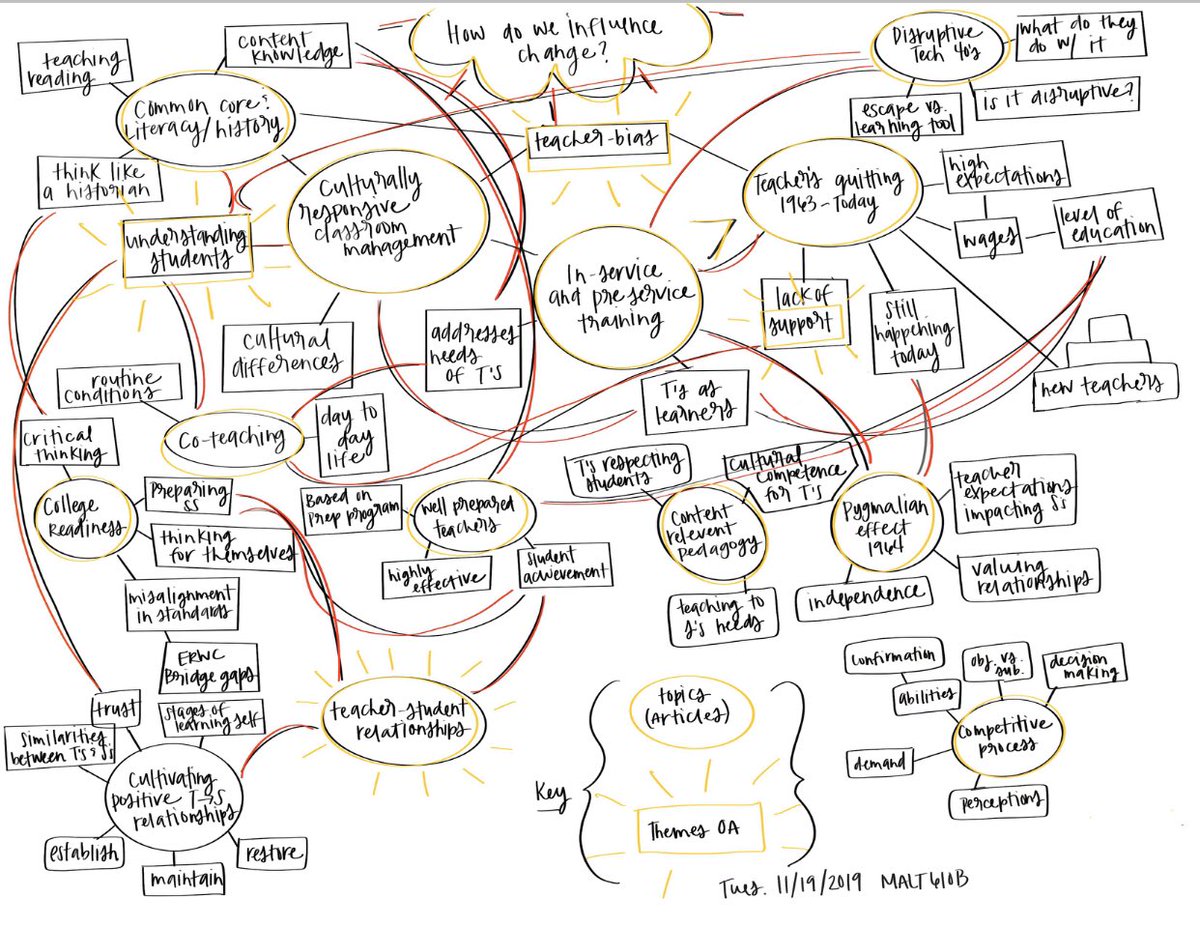 How do we influence
change?
Disruptive
Tech 40s
what do they
do w/ it
is it disruptive?
escape vs.
learning tool
teaching
reading
content
knowledge
Common core:
Literacy/history
think like
a historian
teacher-bias
Culturally
responsive
classroom
management
understanding
students
cultural
differences
Teachers quitting
1963-Today
high
expectations
wages
level of
education
In-service
and preservice
training
lack of
support
still
happening
today
new teachers
addresses
needs
of T'S
T's as
learners
routine
conditions
Co-teaching
day to
day
life
critical
thinking
College
Readiness
Preparing
SS
thinking
for themselves
misalignment
in standards
ERWC
Bridge gaps
Based on
prep program
well prepared
teachers
highly
effective
student
achievement
T's respecting
students
cultural
competence
for T's
Content
relevent
pedagogy
teaching to
S's needs
Pygmalian
effect
1964
teacher
expectations
impacting Ss
valuing
relationships
independence
trust
stages of
learning self
similarities
between T's & Ss
Cultivating
positive T→S
relationships
establish
maintain
restore
teacher-student
relationships
Key
topics
(Articles)
Themes OA
confirmation
abilities
obj. vs.
sub.
decision
making
Competitive
process
demand
perceptions
Tues. 11/19/2019 MALT610B